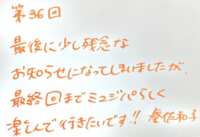 第36回
最後に少し残念な
お知らせになってしまいましたが、
最終回までミュジパらしく
楽しんで行きたいです!!